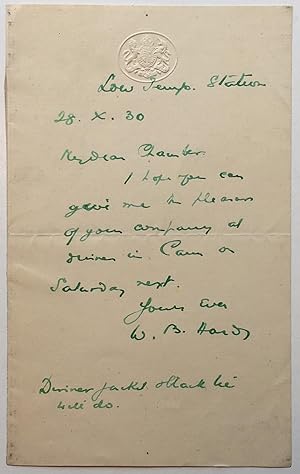 Low Temp. Station
28. X. 30
My dear Chamber.
I hope you can
give me the pleasure
of your company at
dinner in Caius on
Saturday next.
Yours Ever
W. B. Hardy
Dinner jacket & black tie
will do.